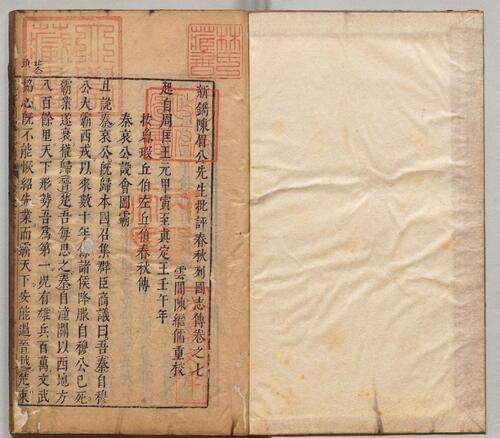 新鐫陳眉公先生批評春秋列國志傳卷之七
雲間陳繼儒重校
起自周匡王元甲寅至真定王壬午年
按魯瑕丘伯左丘倎春秋傳
秦哀公設會圖霸
且說秦哀公旣歸本國召集群臣商議曰吾秦自穆
公大霸西戎以來數十年傳諸侯降服自穆公已死
霸業遂衰權歸晉楚吾每思之秦自潼關以西地方
八百餘里天下形勢吾爲第一況有雄兵百萬文武
協心旣不能恢紹先業而霸天下安能過晉越楚東